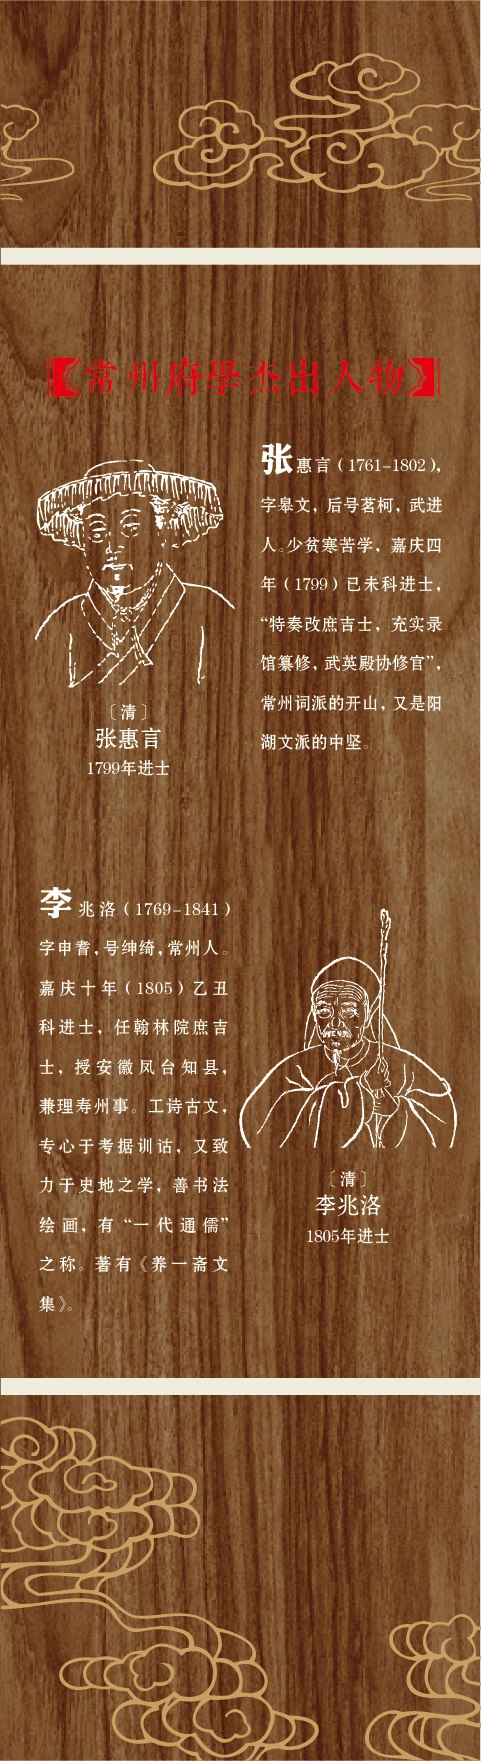 【常州府學杰出人物】
张惠言（1761-1802），
字皋文，后号茗柯，武进
人。少贫寒苦学，嘉庆四
年（1799）已未科进士，
“特奏改庶吉士，充实录
馆纂修，武英殿协修官”，
常州词派的开山，又是阳
湖文派的中坚。
〔清〕
张惠言
1799年进士
李兆洛（1769-1841）
字申耆，号绅绮，常州人。
嘉庆十年（1805）乙丑
科进士，任翰林院庶吉
士，授安徽凤台知县，
兼理寿州事。工诗古文，
专心于考据训诂，又致
力于史地之学，善书法
绘画，有“一代通儒”
之称。著有《养一斋文
集》。
〔清〕
李兆洛
1805年进士